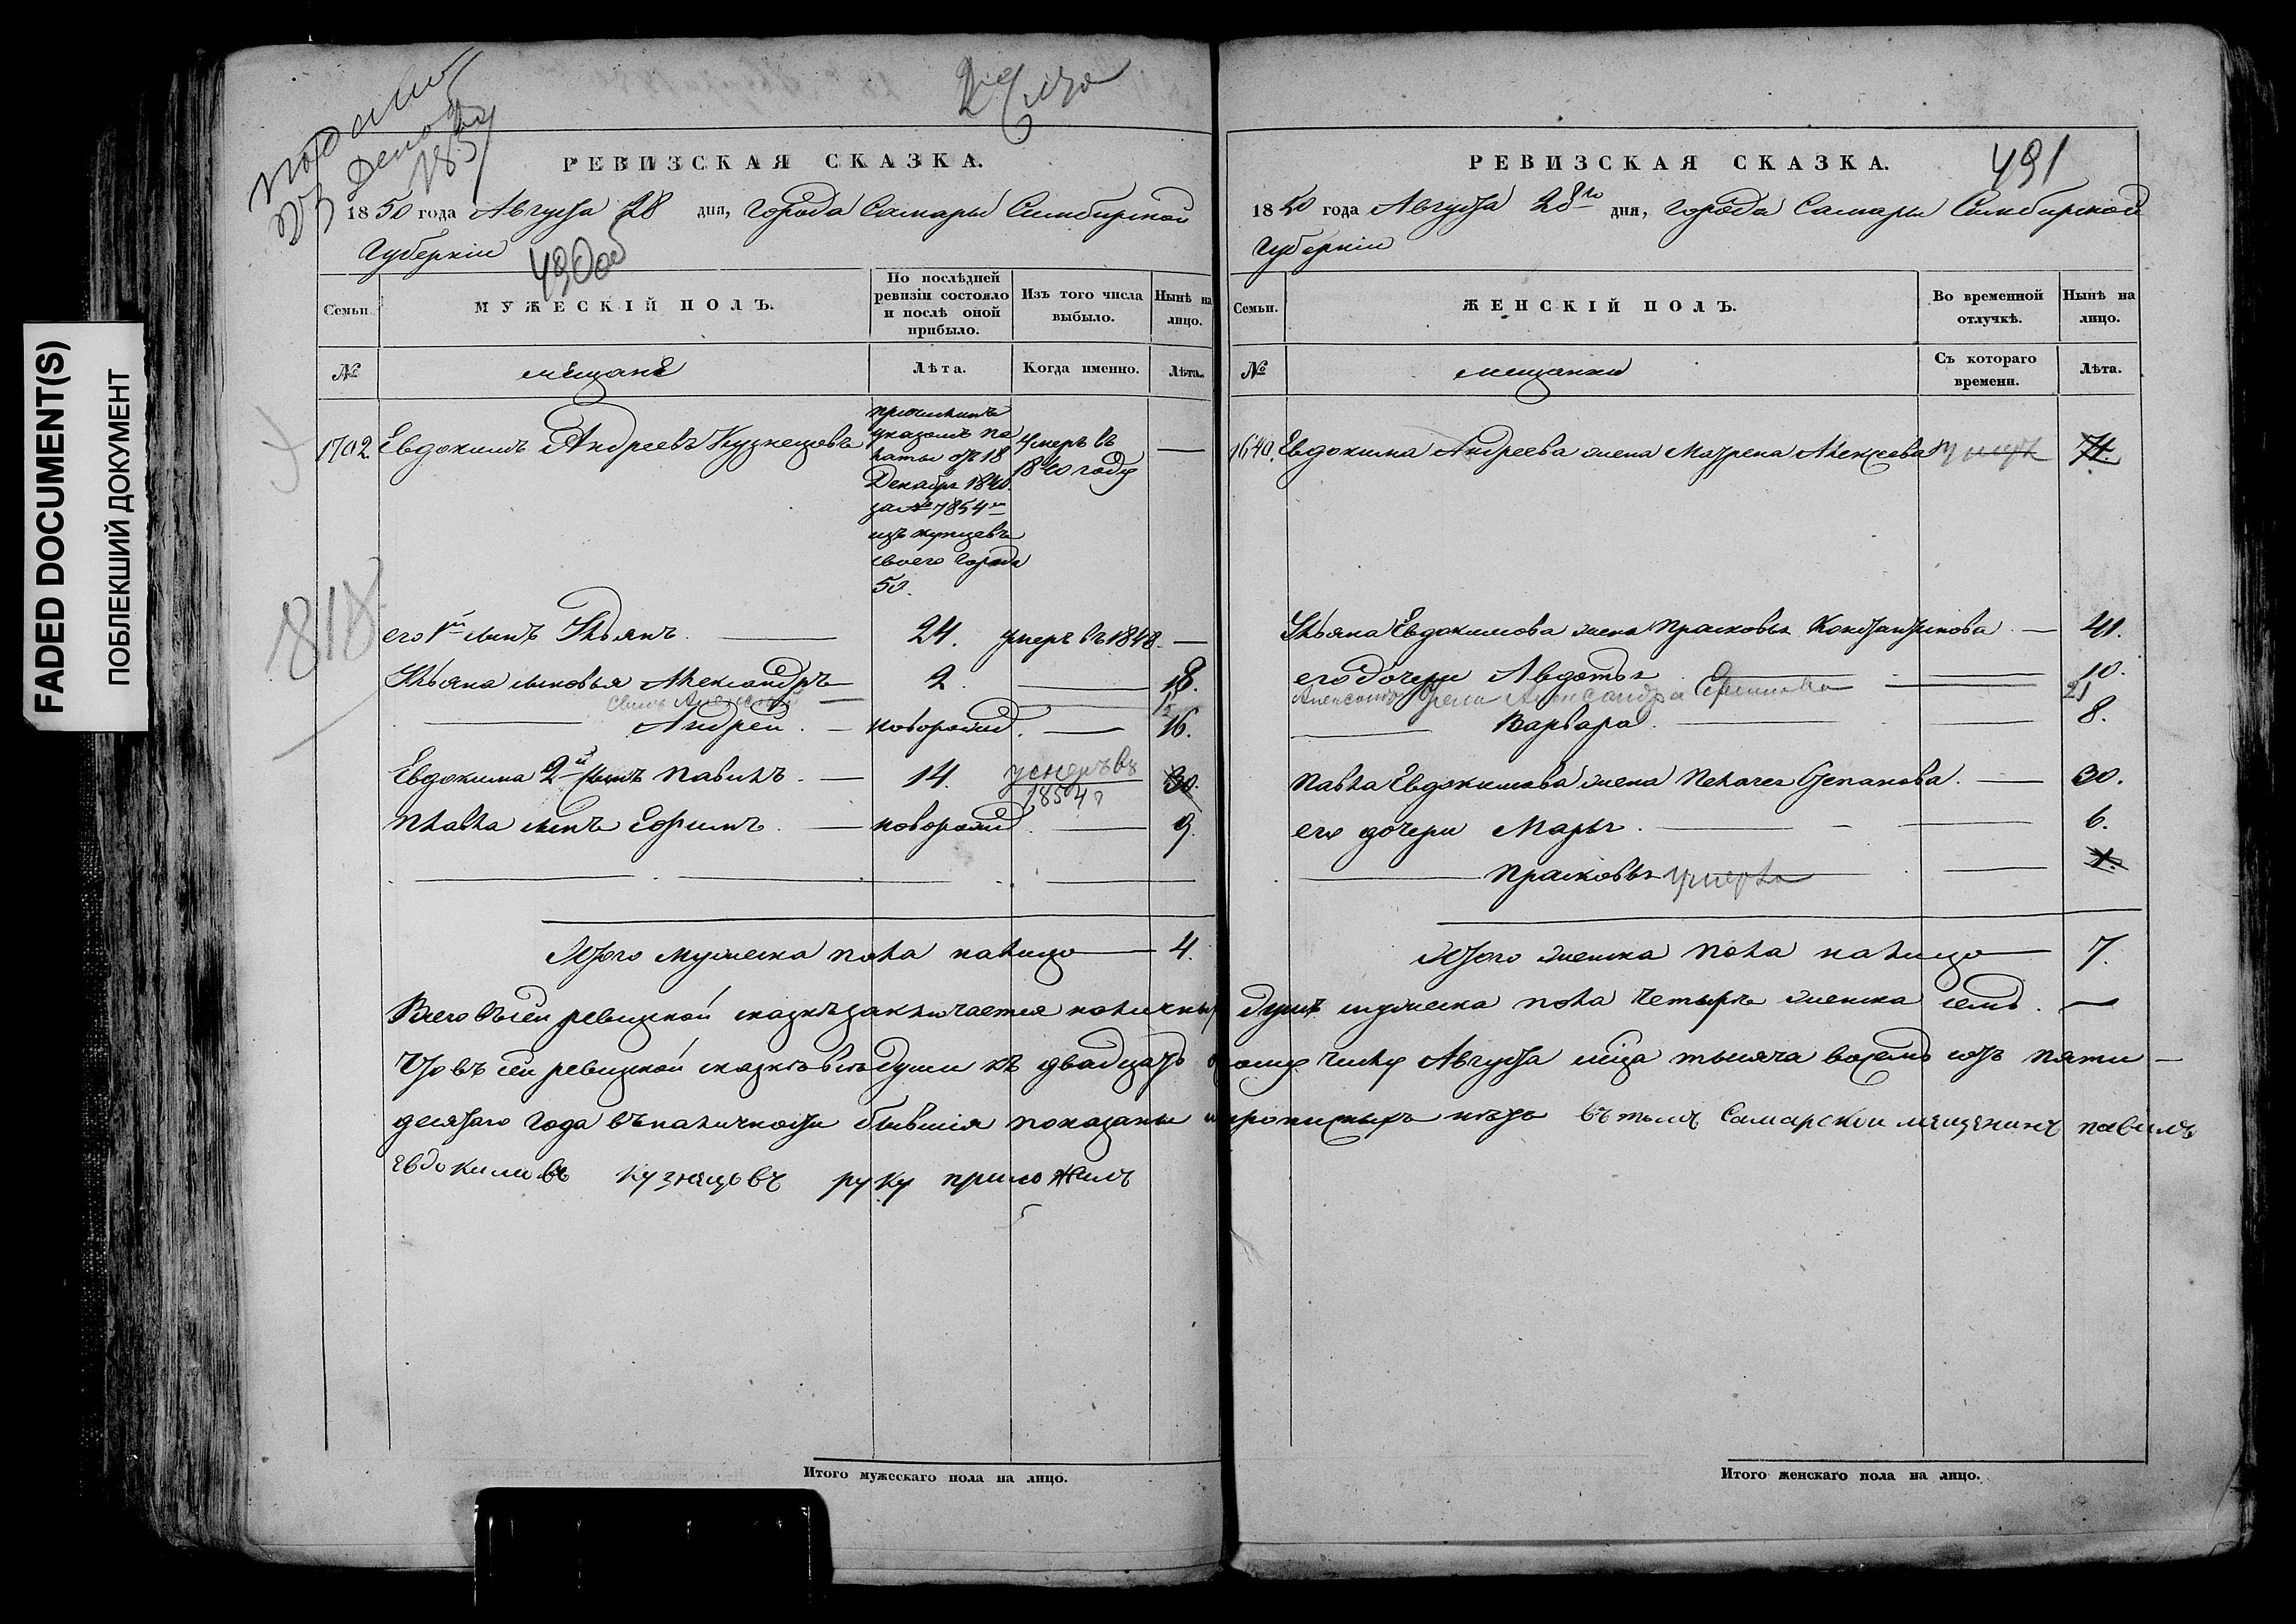 FADED DOCUMENT(S)
ПОБЛЕКШИЙ ДОКУМЕНТ
818
РЕВИЗСКАЯ СКАЗКА.
1850 года Августа 28 дня, города Самары Симбирской
Губерніи
Семьи
МУЖЕСКІЙ ПОЛЪ.
По послѣдней ревизіи состояло и послѣ оной прибыло.
Изъ того числа выбыло.
Нынѣ на лицо.
№
мещане
Лѣта.
Когда именно.
Лѣта.
1702 Евдокимъ Андреевъ Кузнецовъ
причисленъ
указомъ па
латы отъ 18
Декабря 1840
за № 7854
изъ купцовъ
своего города
50.
умеръ въ
1840 году
его 1й сынъ Ульянъ. 24. умеръ въ 1848.
Ульяна сыновья Александръ 2. 18.
сынъ
Андрей. новорожд. 16.
Евдокима 2й сынъ Павилъ. 14. умеръ въ 1854 30.
Павла сынъ Ефимъ. новорожд. 9.
Итого мужеска пола налицо 4.
РЕВИЗСКАЯ СКАЗКА.
491
1850 года Августа 28го дня, города Самары Симбирской
Губерніи
Семьи.
ЖЕНСКІЙ ПОЛЪ.
Во временной отлучкѣ.
Нынѣ на лицо.
№
мещанки
Съ котораго времени.
Лѣта.
1640. Евдокима Андреева жена Матрена Алексеева 71.
Ульяна Евдокимова жена Прасковья Константинова 41.
его дочери Авдотья 10.
Александра жена Александра 21
Варвара 8.
Павла Евдокимова жена Пелагея Степанова. 30.
его дочери Марья. 6.
Прасковья умерла 1.
Итого женска пола налицо 7.
Всего въ сей ревизкой сказкѣ заключается наличныхъ душъ мужеска пола четыре женска семь.
Что въ сей ревизкой сказкѣ все души къ двадцать осьмому числу Августа мца тысяча восемь сотъ пяти
десятаго года въ наличности бывшія показаны и прописныхъ нѣтъ въ томъ Самарской мещенинъ павилъ
евдокимовъ кузнецовъ руку приложилъ
Итого мужескаго пола на лицо.
Итого женскаго пола на лицо.